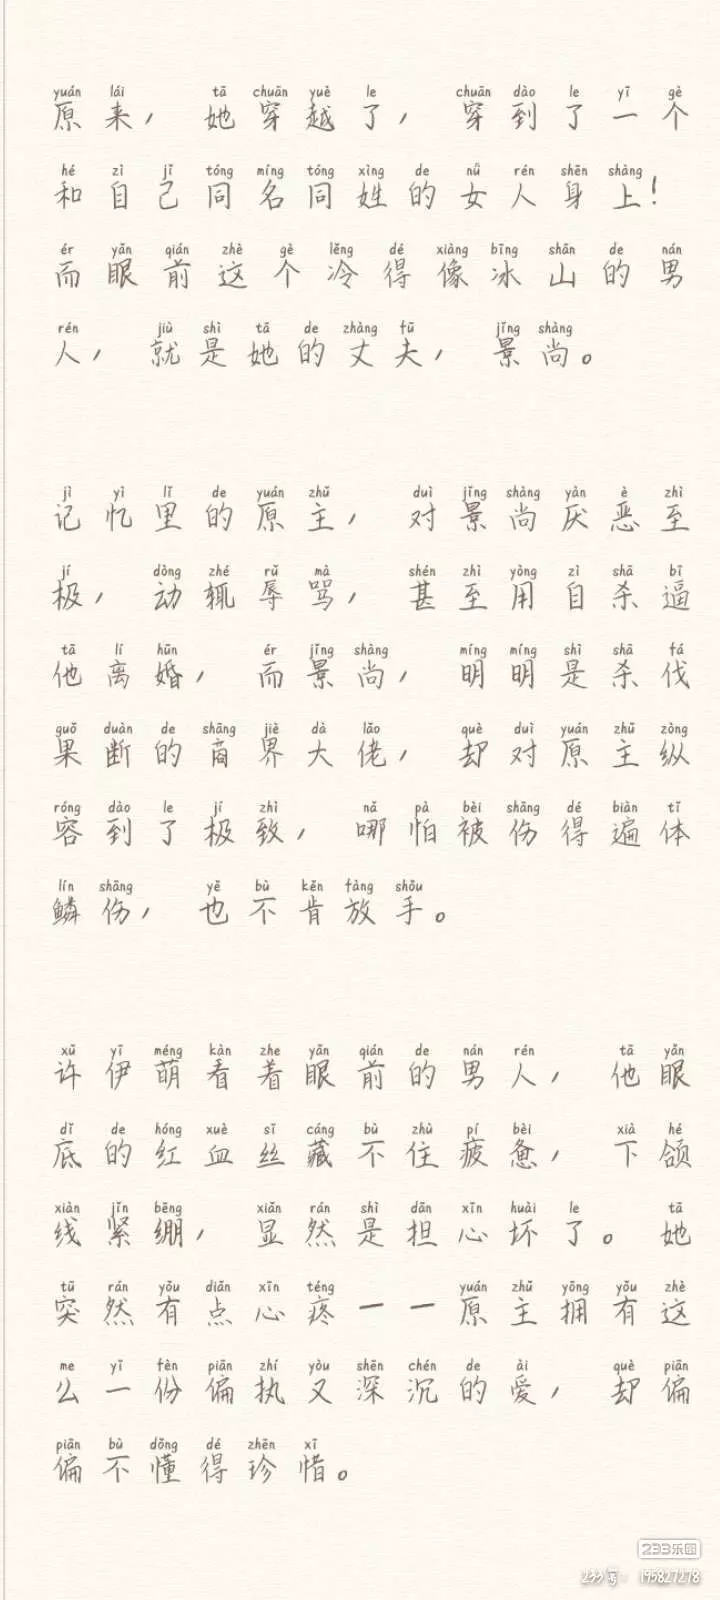 yuán lái tā chuān yuè le chuān dào le yī gè
原来，她穿越了，穿到了一个
hé zì jǐ tóng míng tóng xìng de nǚ rén shēn shàng
和自己同名同姓的女人身上！
ér yǎn qián zhè gè lěng dé xiàng bīng shān de nán
而眼前这个冷得像冰山的男
rén jiù shì tā de zhàng fū jǐng shàng
人，就是她的丈夫，景尚。
jì yì lǐ de yuán zhǔ duì jǐng shàng yàn è zhì
记忆里的原主，对景尚厌恶至
jí dòng zhé rǔ mà shén zhì yòng zì shā bī
极，动辄辱骂，甚至用自杀逼
tā lí hūn ér jǐng shàng míng míng shì shā fá
他离婚，而景尚，明明是杀伐
guǒ duàn de shāng jiè dà lǎo què duì yuán zhǔ zòng
果断的商界大佬，却对原主纵
róng dào le jí zhì nǎ pà bèi shāng dé biàn tǐ
容到了极致，哪怕被伤得遍体
lín shāng yě bù kěn fàng shǒu
鳞伤，也不肯放手。
xǔ yī méng kàn zhe yǎn qián de nán rén tā yǎn
许伊萌看着眼前的男人，他眼
dǐ de hóng xuè sī cáng bù zhù pí bèi xià hé
底的红血丝藏不住疲惫，下颌
xiàn jǐn bēng xiǎn rán shì dān xīn huài le tā
线紧绷，显然是担心坏了。她
tū rán yǒu diǎn xīn téng yuán zhǔ yōng yǒu zhè
突然有点心疼——原主拥有这
me yī fèn piān zhí yòu shēn chén de ài què piān
么一份偏执又深沉的爱，却偏
piān bù dǒng dé zhēn xī
偏不懂得珍惜。
233乐园
233号：195827278